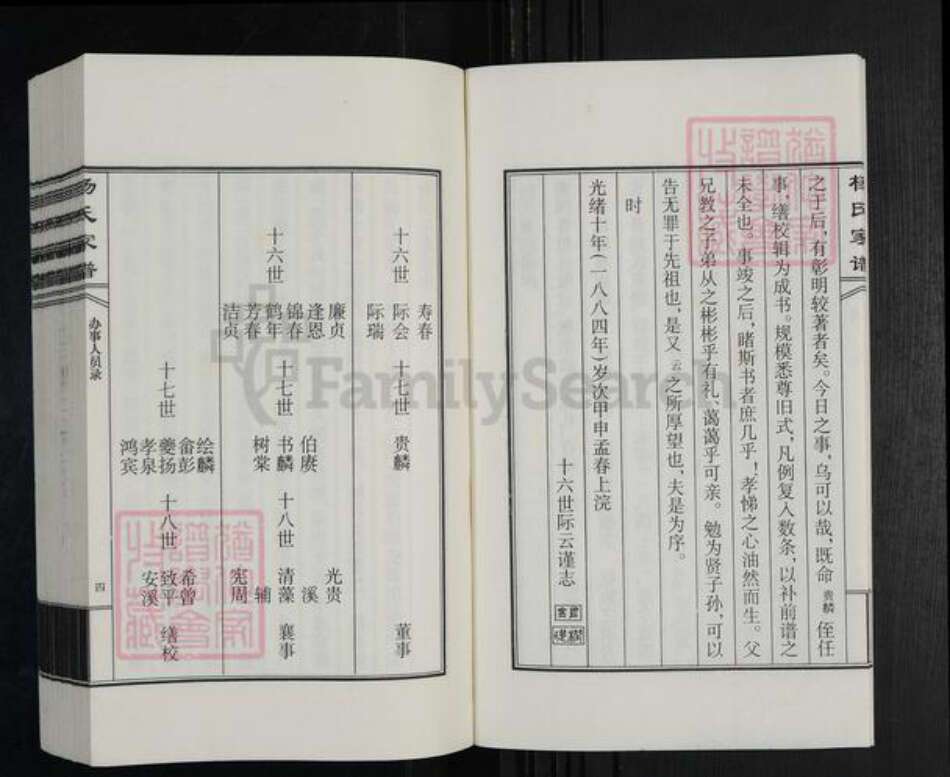 杨氏家谱
之于后，有彰明较著者矣。今日之事，乌可以哉，既命 贵麟 侄任
事，缮校辑为成书。规模悉尊旧式，凡例复入数条，以补前谱之
未全也。事竣之后，睹斯书者庶几乎！孝悌之心油然而生。父
兄教之子弟从之彬彬乎有礼、蔼蔼乎可亲。勉为贤子孙，可以
告无罪于先祖也，是又 云 之所厚望也，夫是为序。
时
光绪十年（一八八四年）岁次甲申孟春上浣
十六世际云谨志
寿春
十六世 际会 十七世 贵麟 董事
际瑞
廉贞 光贵
逢恩 伯赓 溪
锦春
十六世 鹤年 十七世 书麟 十八世 清藻 襄事
芳春 树棠 辅
洁贞 宪周
绘麟
畲彭 希曾
十七世 夔扬 十八世 致平 缮校
孝泉 安溪
鸿宾
杨氏家谱
办事人员录
四
FamilySearch